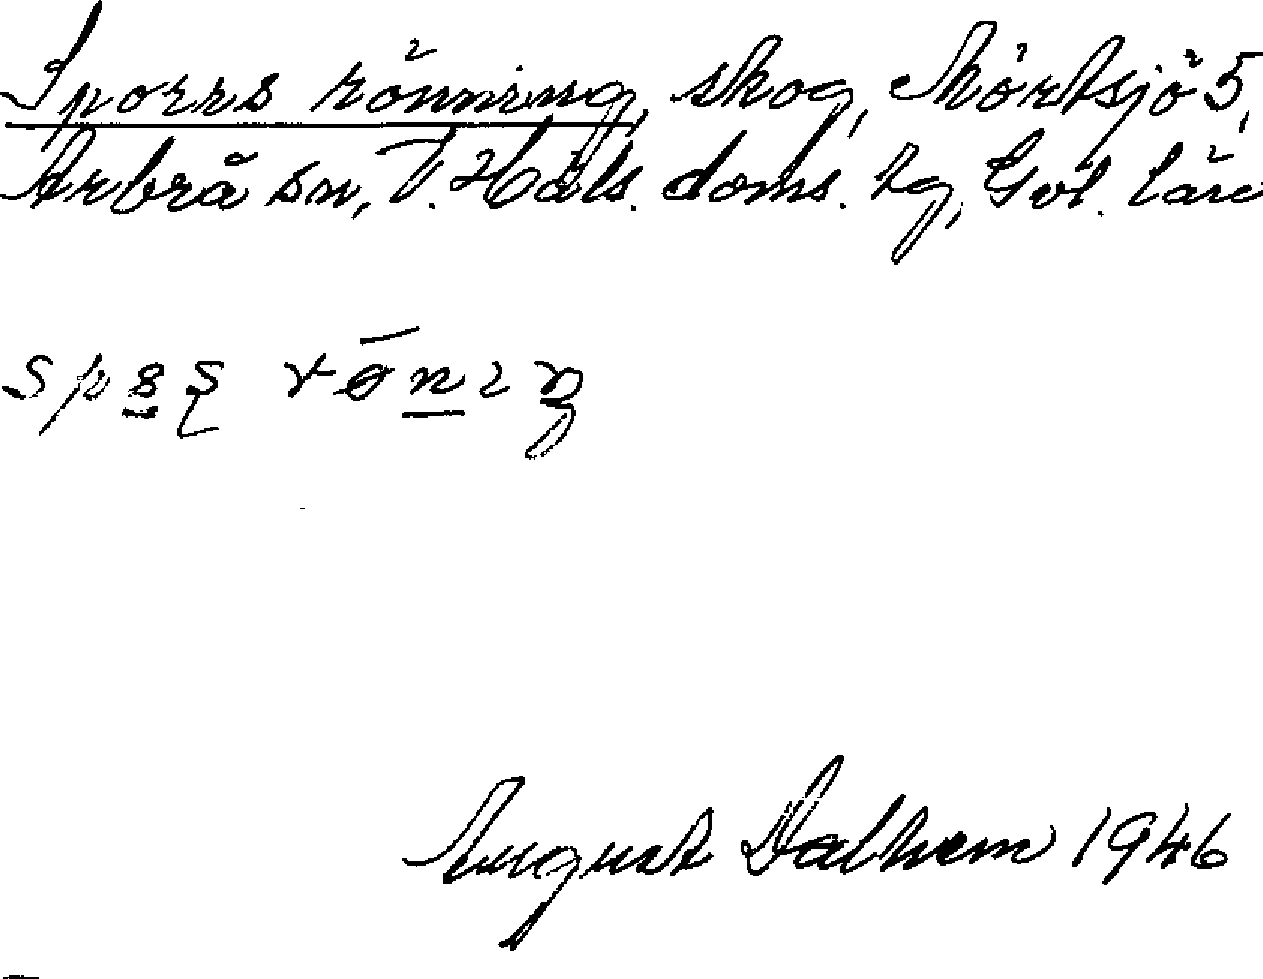 Sporrs rönning, skog, Mörtsjö 5,
Arbrå sn, V. Häls. doms. tg, Gvl. län
August Dalhem 1946